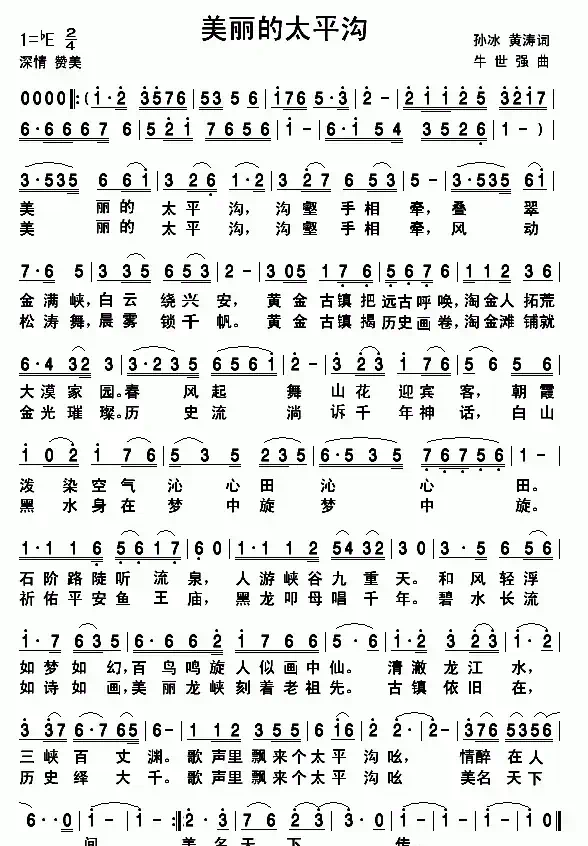 美丽的太平沟
1=♭E 2/4
孙冰 黄涛词
深情 赞美
牛世强 曲
0000‖:(1·2 3576|5356|176 5·3|2-|21125 3217|
6·6667 6|521 7656|1-|6·154 3526|1-)|
3·535 661|326 1·2|327 653|5-|3·535 61|
美 丽的 太平 沟,沟壑 手相 牵,叠 翠
美 丽的 太平 沟,沟壑 手相 牵,风 动
7·6 5|335 653|2-|305 176|5676|112 36|
金满峡,白云 绕兴 安, 黄金 古镇把 远古呼唤,淘金人 拓荒
松涛舞,晨雾 锁千 帆。 黄金 古镇揭 历史画卷,淘金滩 铺就
6·432 3|3·235 6561|2-|323 176|123|
大漠家 园。春 风起 舞 山花 迎宾 客, 朝霞
金光璀 璨。历 史流 淌 诉千 年神 话,白山
102 176|535 235|6·535 76756|1-|
泼染空气 沁 心田 沁 心 田。
黑水身在 梦 中旋 梦 中 旋。
1·116 5617|60|1·112 5432|30|3·5 56|
石阶路陡听 流 泉, 人游峡谷九 重 天。和风轻浮
祈佑平安鱼 王 庙, 黑龙叩母唱 千 年。碧水长流
1·7 635|6·662 1766|5·6|1·2 323|2-|
如梦如 幻,百鸟鸣旋人似画中仙。 清澈 龙江 水,
如诗如 画,美丽龙峡刻着老祖先。 古镇 依旧 在,
3 37 6·765|6-|112 355|616|2 2·|2-|376 5356|
三峡 百 丈 渊。歌声里 飘来个太平 沟吆, 情醉 在人
历史 绎 大 千。歌声里 飘来个太平 沟吆 美名 天下
6··0|1-|1-:‖2·3|76 23|3··0|1-|1-|1 0‖
间 美名天 下 传